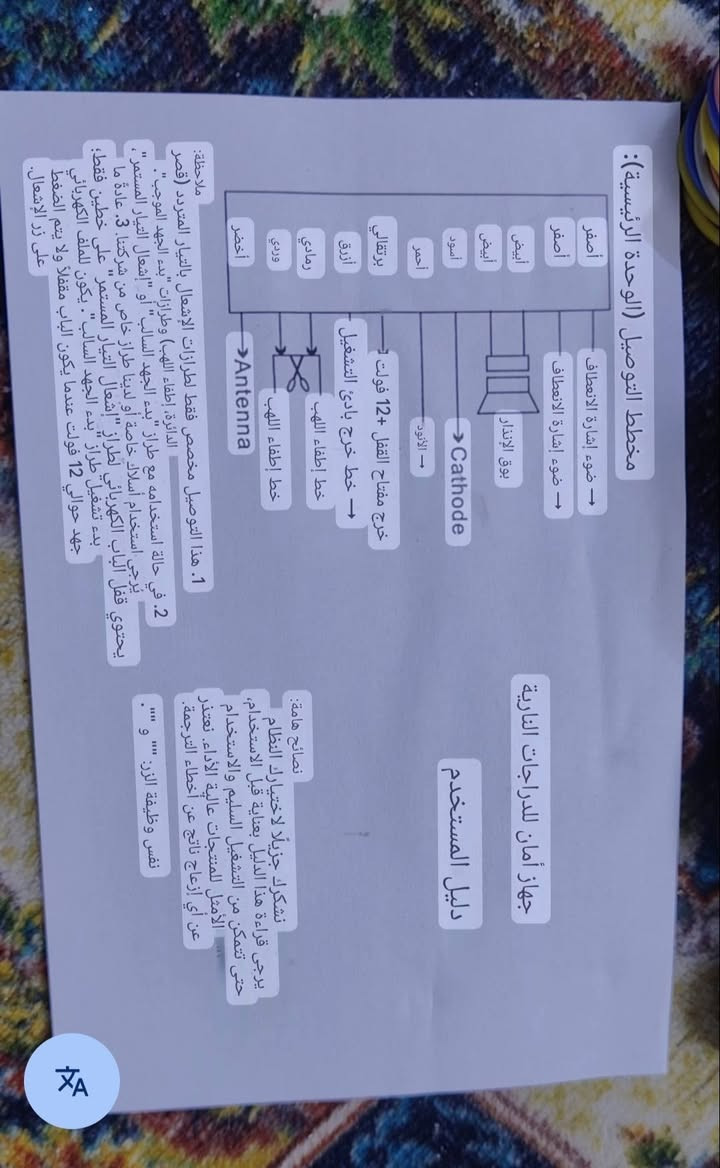 مخطط التوصيل (الوحدة الرئيسية):
أصفر
ضوء إشارة الانعطاف →
أصفر
ضوء إشارة الانعطاف →
أبيض
أبيض
بوق الإنذار
أسود
Cathode
أحمر
الأنود →
برتقالي
خرج مفتاح القفل +12 فولت
أزرق
خط خرج بادئ التشغيل →
رمادي
خط إطفاء اللهب
وردي
خط إطفاء اللهب
أخضر
Antenna
ملاحظة:
1. هذا التوصيل مخصص فقط لطرازات الإشعال بالتيار المتردد (قصر
الدائرة، إطفاء اللهب) وطرازات "بدء الجهد الموجب".
2. في حالة استخدامه مع طراز "بدء الجهد السالب" أو "إشعال التيار المستمر"،
يُرجى استخدام أسلاك خاصة أو لدينا طراز خاص من شركتنا. 3. عادةً ما
يحتوي قفل الباب الكهربائي لطراز "إشعال التيار المستمر" على خطين فقط؛
بدء تشغيل طراز "بدء الجهد السالب". يكون للملف الكهربائي
جهد حوالي 12 فولت عندما يكون الباب مقفلاً ولا يتم الضغط
على زر الإشعال.
جهاز أمان للدراجات النارية
دليل المستخدم
نصائح هامة:
نشكرك جزيلًا لاختيارك النظام
يرجى قراءة هذا الدليل بعناية قبل الاستخدام،
حتى تتمكن من التشغيل السليم والاستخدام
الأمثل للمنتجات عالية الأداء. نعتذر
عن أي إزعاج ناتج عن أخطاء الترجمة.
نفس وظيفة الزر: "" و "".